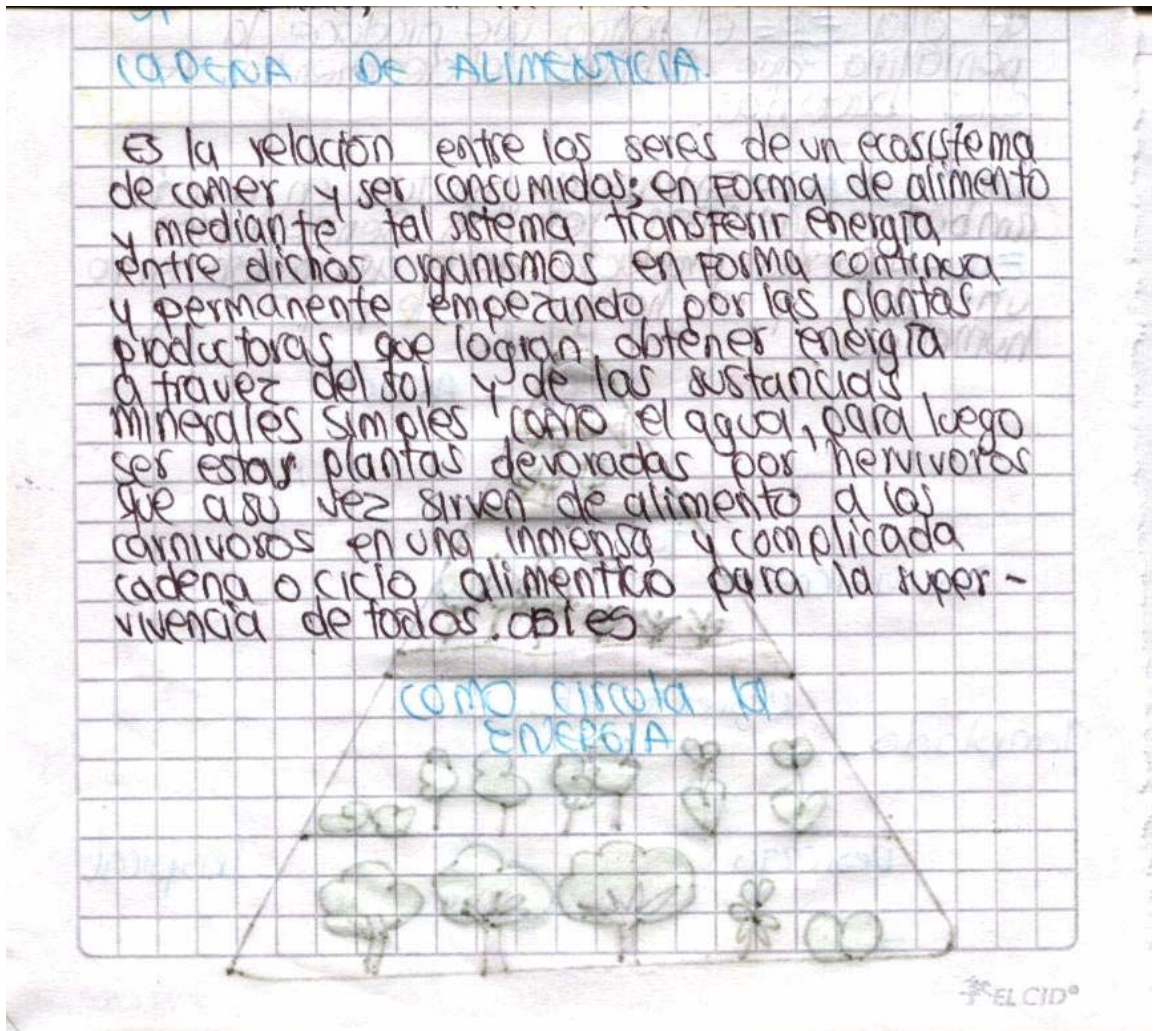 CADENA DE ALIMENTICIA.
Es la relacion entre los seres de un ecosistema
de comer y ser consumidos; en forma de alimento
y mediante tal sistema transferir energía
entre dichos organismos en forma continua
y permanente empezando por las plantas
productoras que logran obtener energía
a travez del sol y de las sustancias
minerales simples como el agua, para luego
ser estas plantas devoradas por hervivoros
que a su vez sirven de alimento a los
carnivoros en una inmensa y complicada
cadena o ciclo alimenticio para la super-
vivencia de todos.
COMO circula la
ENERGIA
EL CID